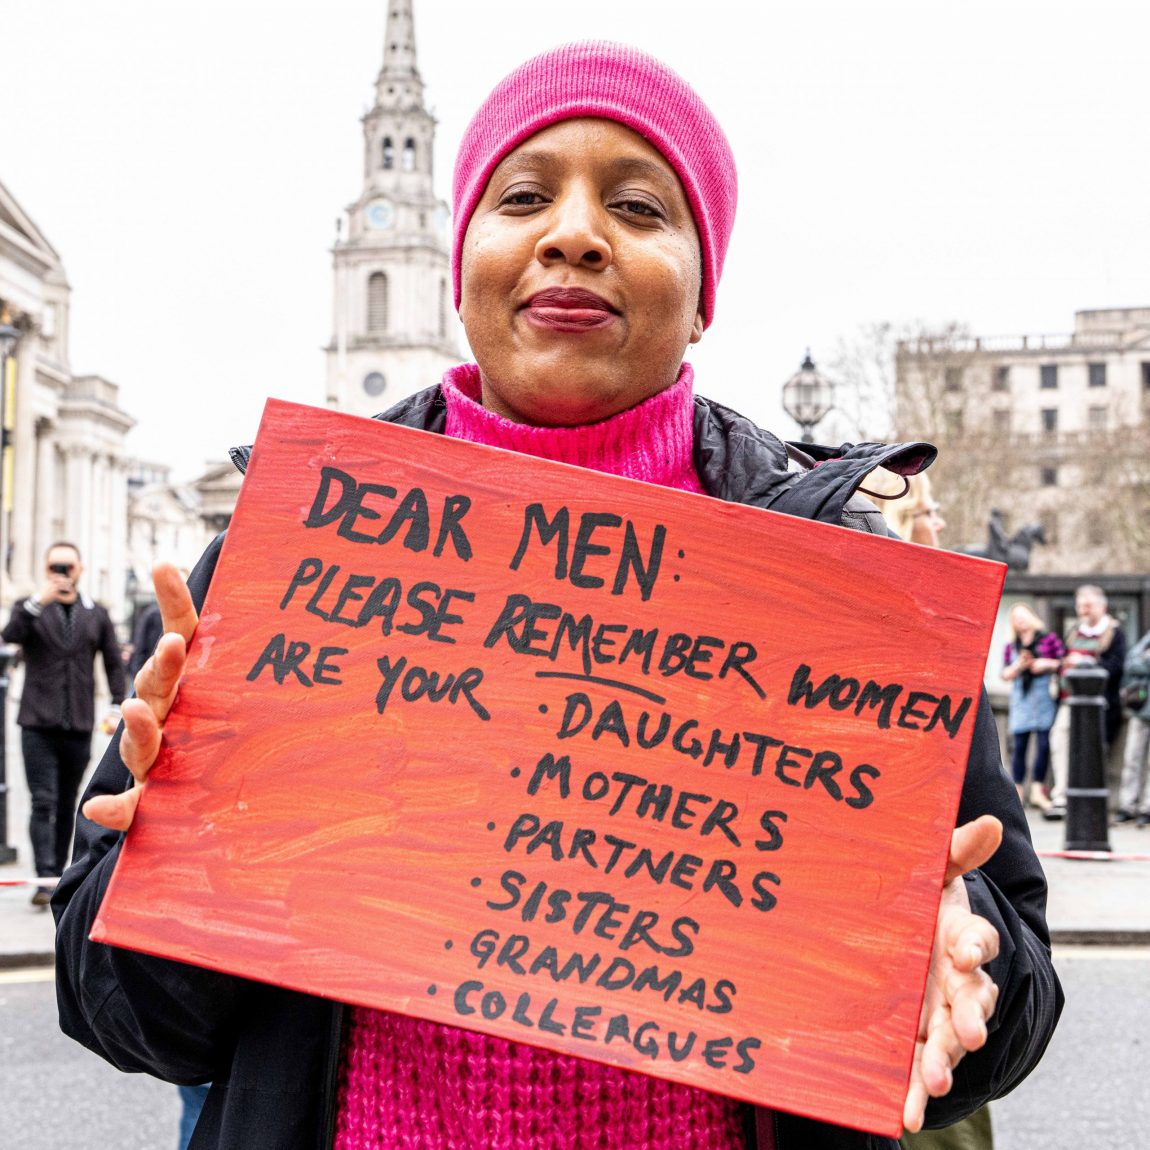 DEAR MEN:
PLEASE REMEMBER WOMEN
ARE YOUR • DAUGHTERS
• MOTHERS
• PARTNERS
• SISTERS
• GRANDMAS
• COLLEAGUES